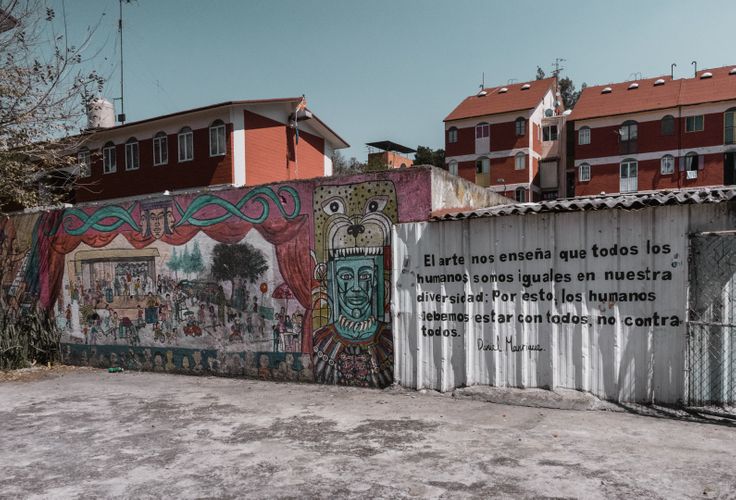 El arte nos enseña que todos los
humanos somos iguales en nuestra
diversidad; Por esto, los humanos
debemos estar con todos, no contra
todos.
Daniel Manrique